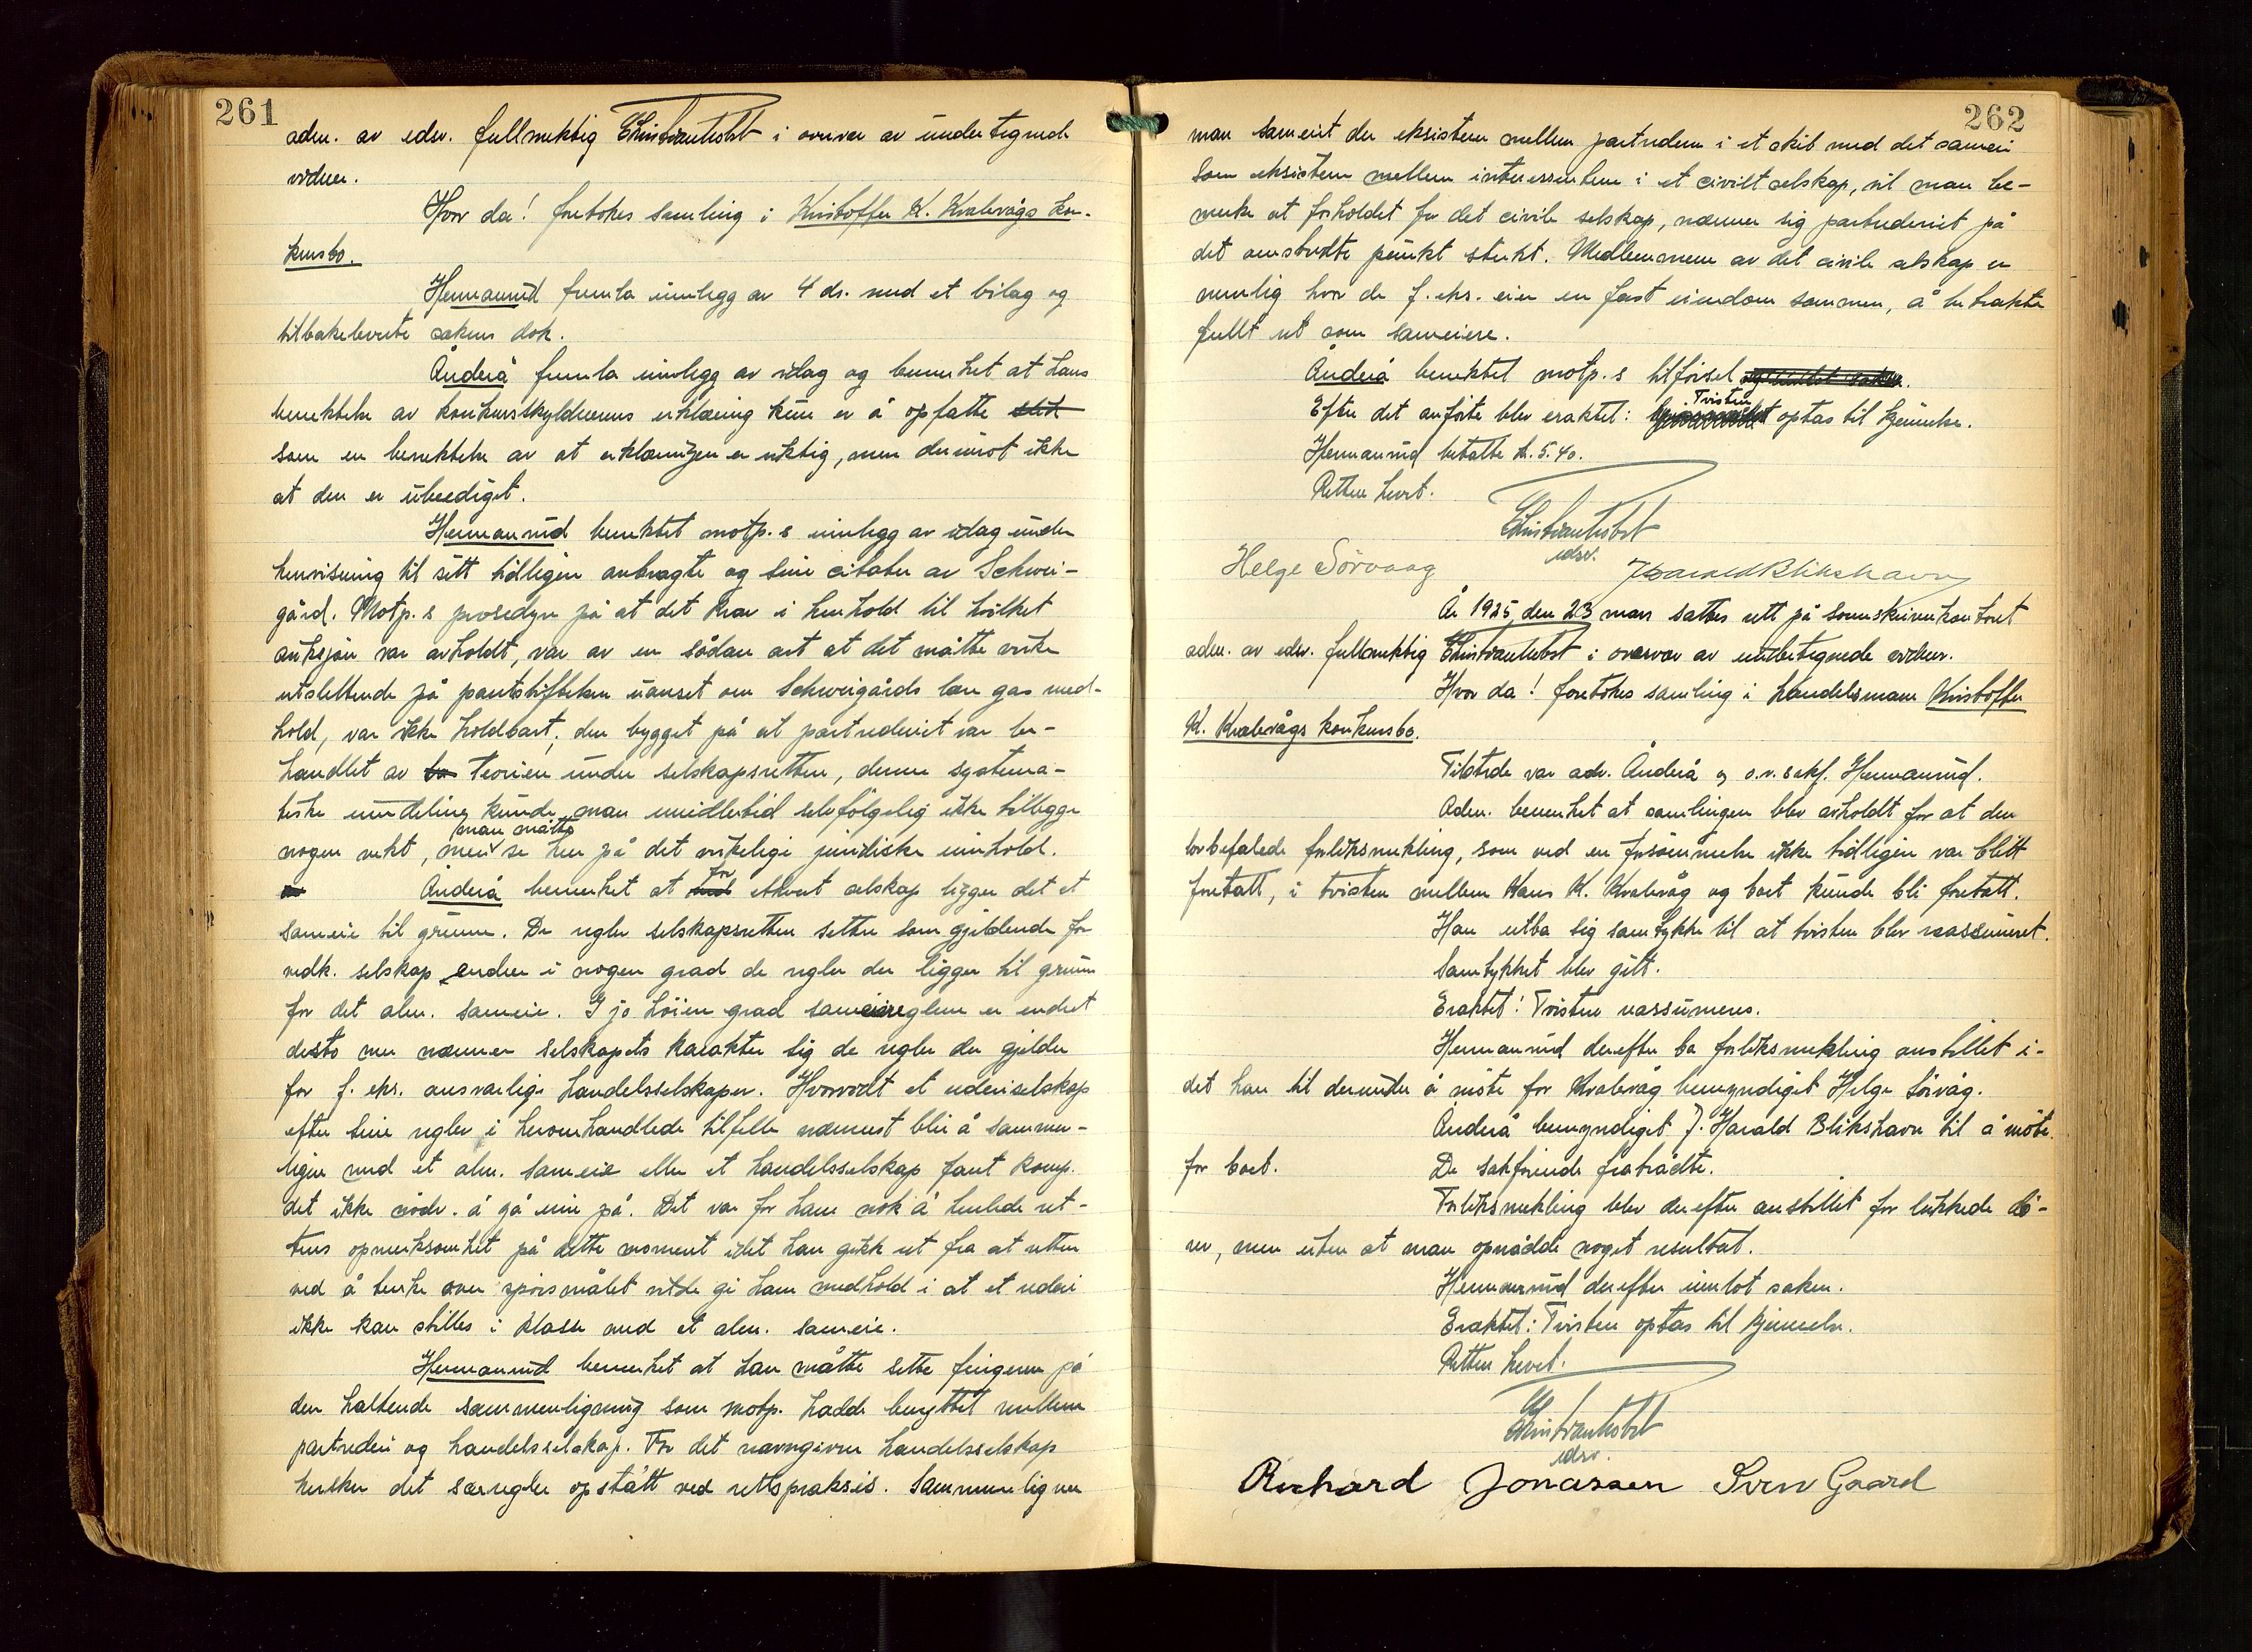 261
adm. av edsv. fullmektig Christian Tesbt i overvær av undertegnede
vidner.
Hvor da! foretokes samling i Kristoffer K. Kvalevågs kon-
kursbo.
Hermanrud fremla innlegg av 4 ds. med et bilag og
tilbakeleverte sakens dok.
Anderå fremla innlegg av idag og bemerket at hans
benektelse av konkursskyldnerens erklæring kun er å opfatte
som en benektelse av at erklæringen er riktig, men derimot ikke
at den er ubeediget.
Hermanrud benektet motp.s innlegg av idag under
henvisning til sitt tidligere anbragte og sine citater av Schwei-
gård. Motp.s prosedyre på at det krav i henhold til hvilket
auksjon var avholdt, var av en sådan art at det måtte virke
utslettende på pantstiftelsen uanset om Schweigårds lære gas med-
hold, var ikke holdbart; den bygget på at partrederiet var be-
handlet av teorien under selskapsretten, denne systema-
tiske inndeling kunde man imidlertid selvfølgelig ikke tillegge
nogen vekt, men man måtte se hen på det virkelige juridiske innhold.
Anderå bemerket at for ethvert selskap ligger det et
sameie til grunn. De regler selskapsretten setter som gjeldende for
vedk. selskap endrer i nogen grad de regler der ligger til grunn
for det alm. sameie. I jo høiere grad sameiereglene er endret
desto mer nærmer selskapets karakter sig de regler der gjelder
for f. eks. ansvarlige handelsselskaper. Hvorvidt et rederiselskap
efter sine regler i heromhandlede tilfelle nærmest blir å sammen-
ligne med et alm. sameie eller et handelsselskap fant komp.
det ikke nødv. å gå inn på. Det var for ham nok å henlede ret-
tens opmerksomhet på dette moment idet han gikk ut fra at retten
ved å tenke over spørsmålet vilde gi ham medhold i at et rederi
ikke kan stilles i klasse med et alm. sameie.
Hermanrud bemerket at han måtte sette fingeren på
den haltende sammenligning som motp. hadde benyttet mellem
partrederi og handelsselskap. For det navngivne handelsselskap
hersker det særregler opstått ved rettspraksis. Sammenligner
262
man sameiet der eksisterer mellem partrederne i et skib med det sameie
som eksisterer mellem interessentene i et civilt selskap, vil man be-
merke at forholdet for det civile selskap, nærmer sig partrederiet på
det omstridte punkt sterkt. Medlemmene av det civile selskap er
nemlig hvor de f. eks. eier en fast eiendom sammen, å betrakte
fullt ut som sameiere.
Anderå benektet motp.s tilførsel
Efter det anførte blev eraktet: Tvisten optas til kjennelse.
Hermanrud betalte kr. 5.40.
Retten hevet.
edsv.
Helge Sørvaag Harald Blikshavn
År 1925, den 23 mars sattes rett på sorenskriverkontoret
adm. av edsv. fullmektig Christian Tesbt i overvær av undertegnede vidner.
Hvor da! foretokes samling i handelsmann Kristoffer
K. Kvalevågs konkursbo.
Tilstede var adv. Anderå og o.r.sakf. Hermanrud.
Adm. bemerket at samlingen blev avholdt for at den
lovbefalede forliksmekling, som ved en forsømmelse ikke tidligere var blitt
foretatt, i tvisten mellem Hans K. Kvalevåg og boet kunde bli foretatt.
Han utba sig samtykke til at tvisten blev reassumeret.
Samtykket blev gitt.
Eraktet: Tvisten reassumeres.
Hermanrud derefter ba forliksmekling anstillet i-
det han til derunder å møte for Kvalevåg bemyndiget Helge Sørvåg.
Anderå bemyndiget J. Harald Blikshavn til å møte
for boet.
De sakførende fratrådte.
Forliksmekling blev derefter anstillet for lukkede dø-
rer, men uten at man opnådde noget resultat.
Hermanrud derefter innlot saken.
Eraktet: Tvisten optas til kjennelse.
Retten hevet.
edsv.
Richard Jonassen Sven Gaard